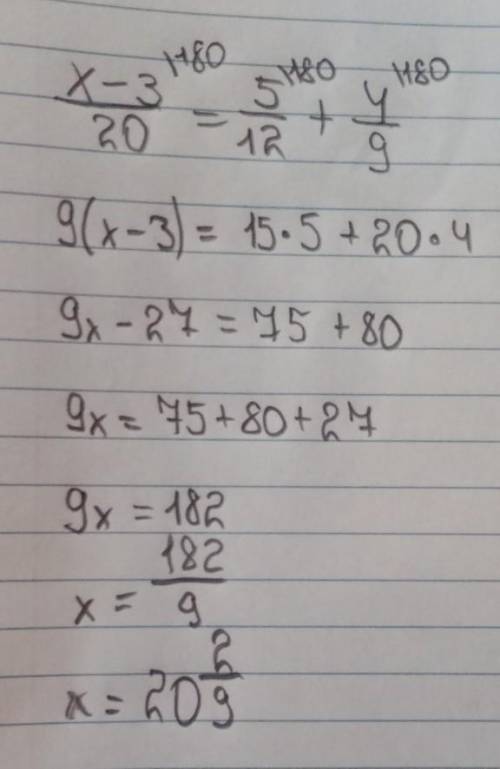 x-3/20 ^180 = 5/12 ^180 + 4/9 ^180
9(x-3) = 15·5 + 20·4
9x - 27 = 75 + 80
9x = 75 + 80 + 27
9x = 182
x = 182/9
x = 20 2/9